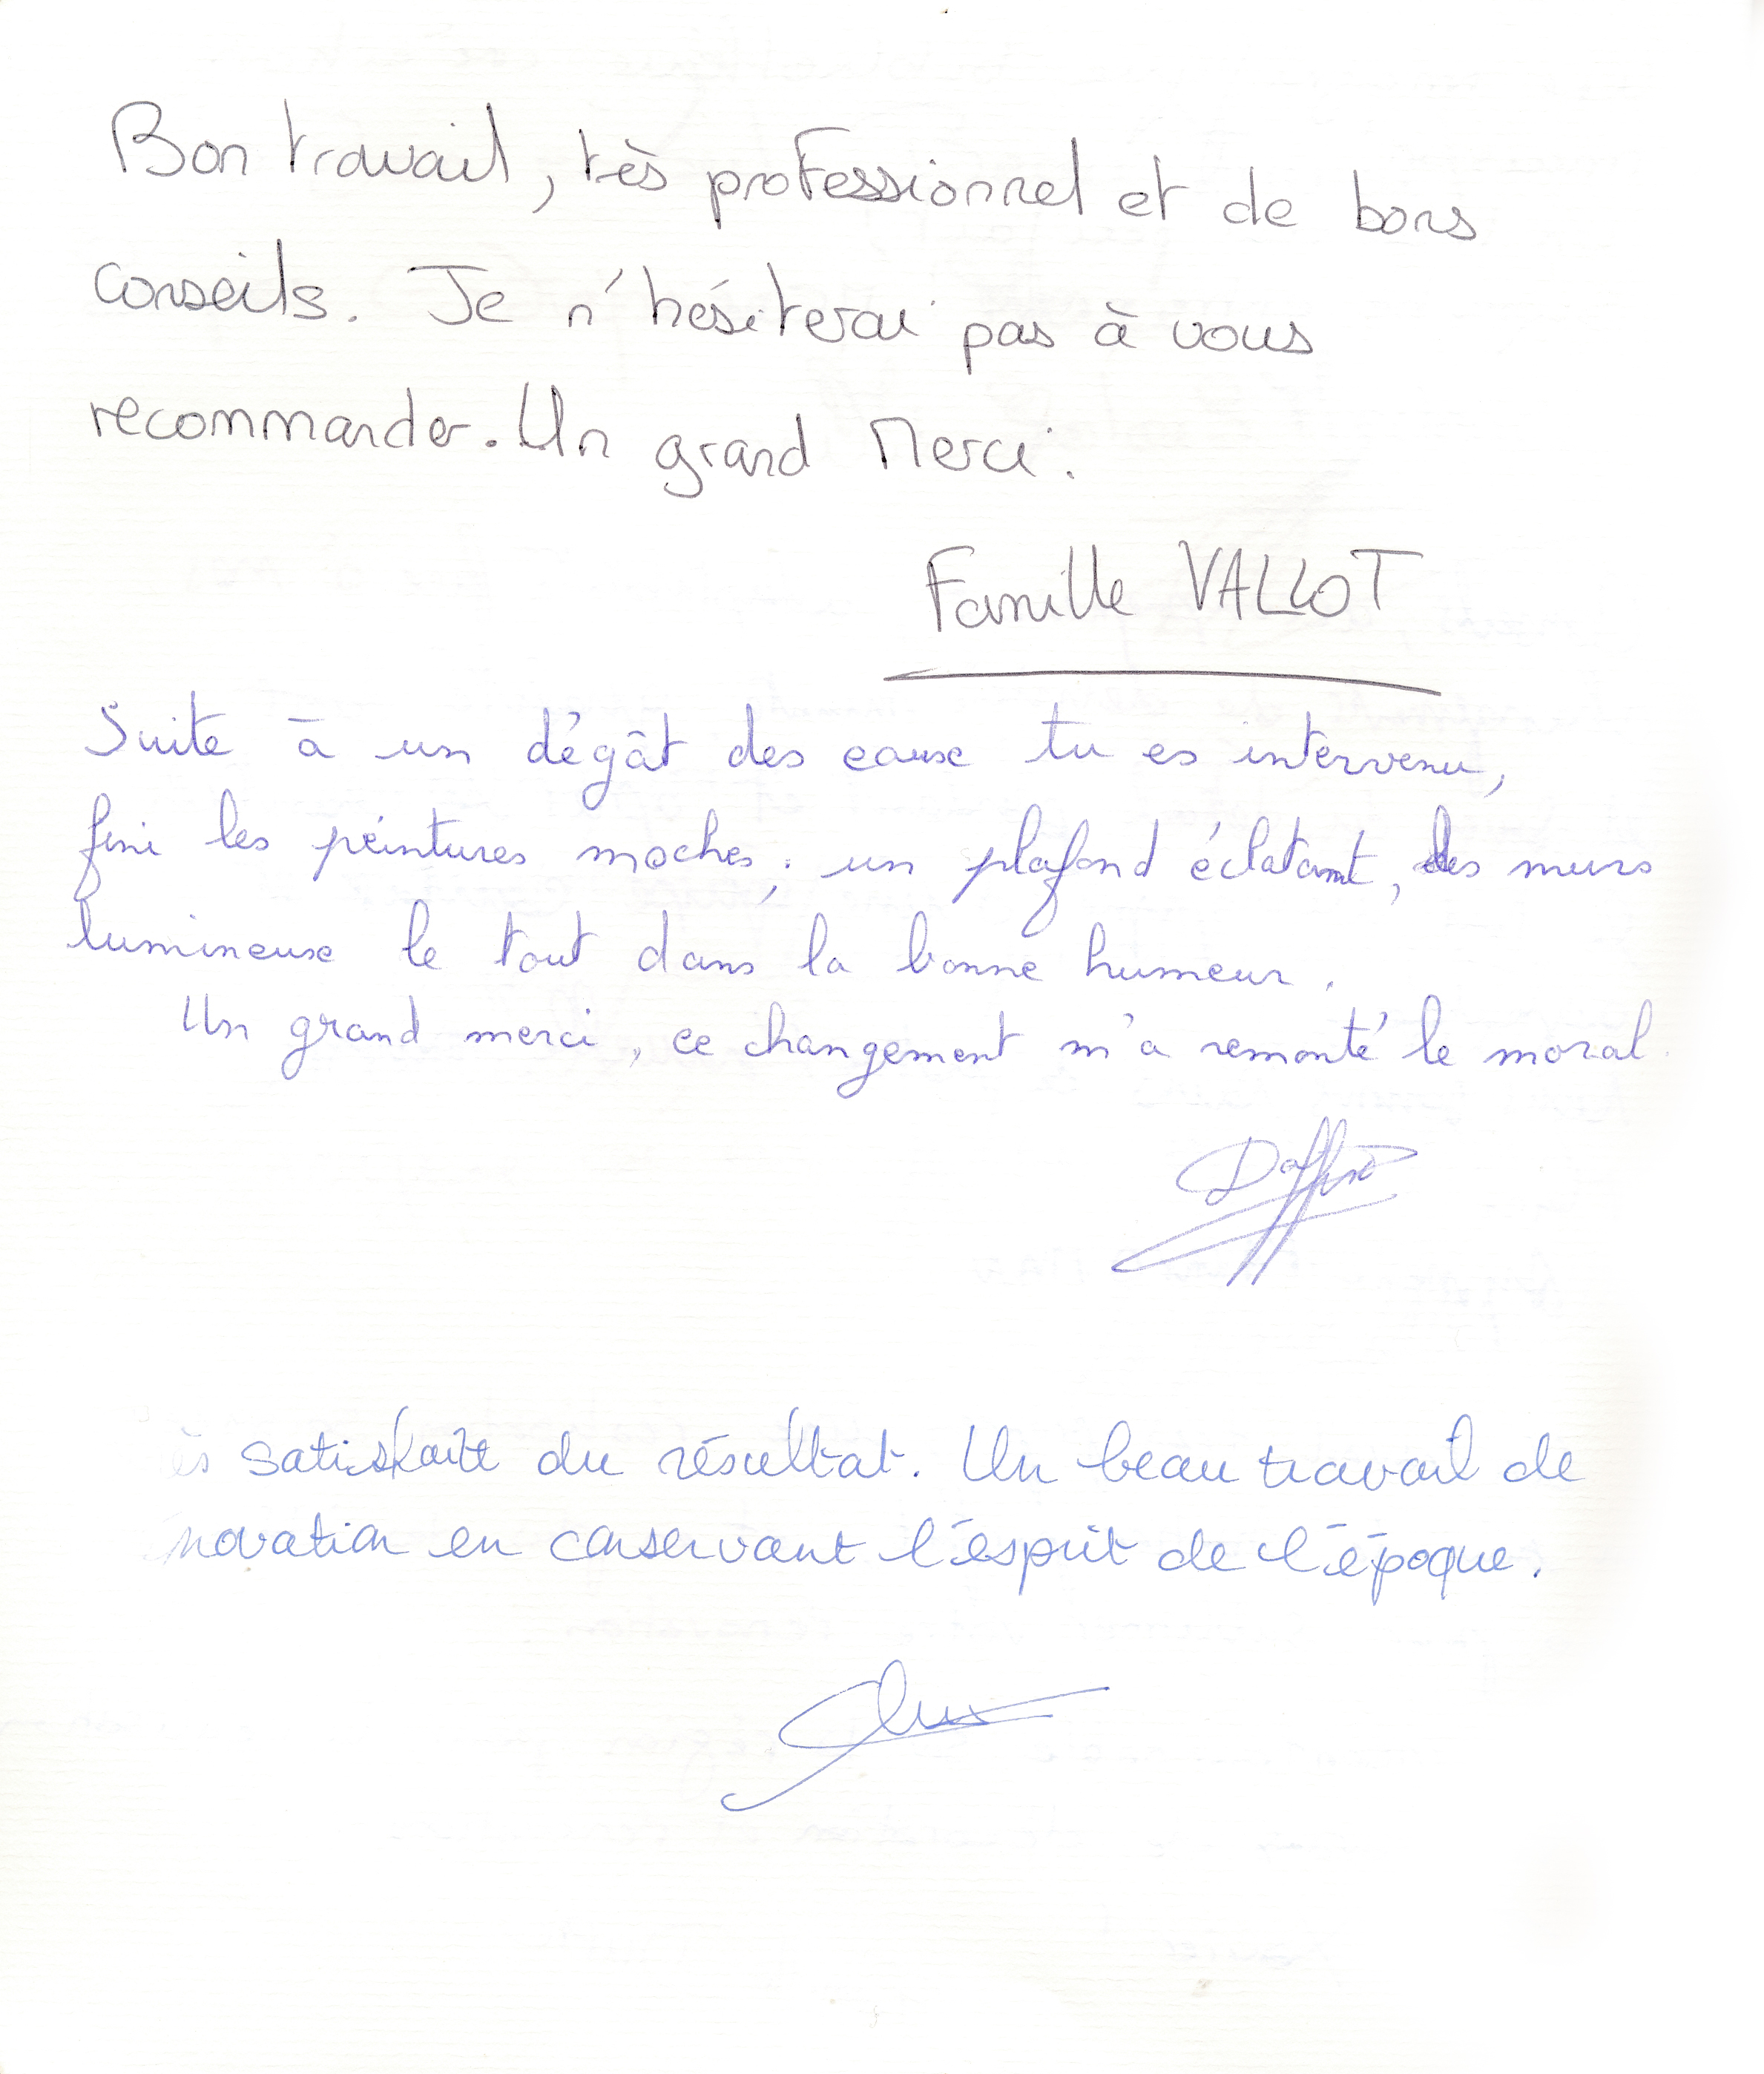 Bon travail, tès professionnel et de bons
conseils. Je n'hésiterai pas à vous
recommander. Un grand Merci.
Famille VALLOT
Suite à un dégât des eaux tu es intervenu,
fini les peintures moches, un plafond éclatant, des murs
lumineux le tout dans la bonne humeur.
Un grand merci, ce changement m'a remonté le moral.
ès satisfaite du résultat. Un beau travail de
novation en conservant l'ésprit de l'époque.